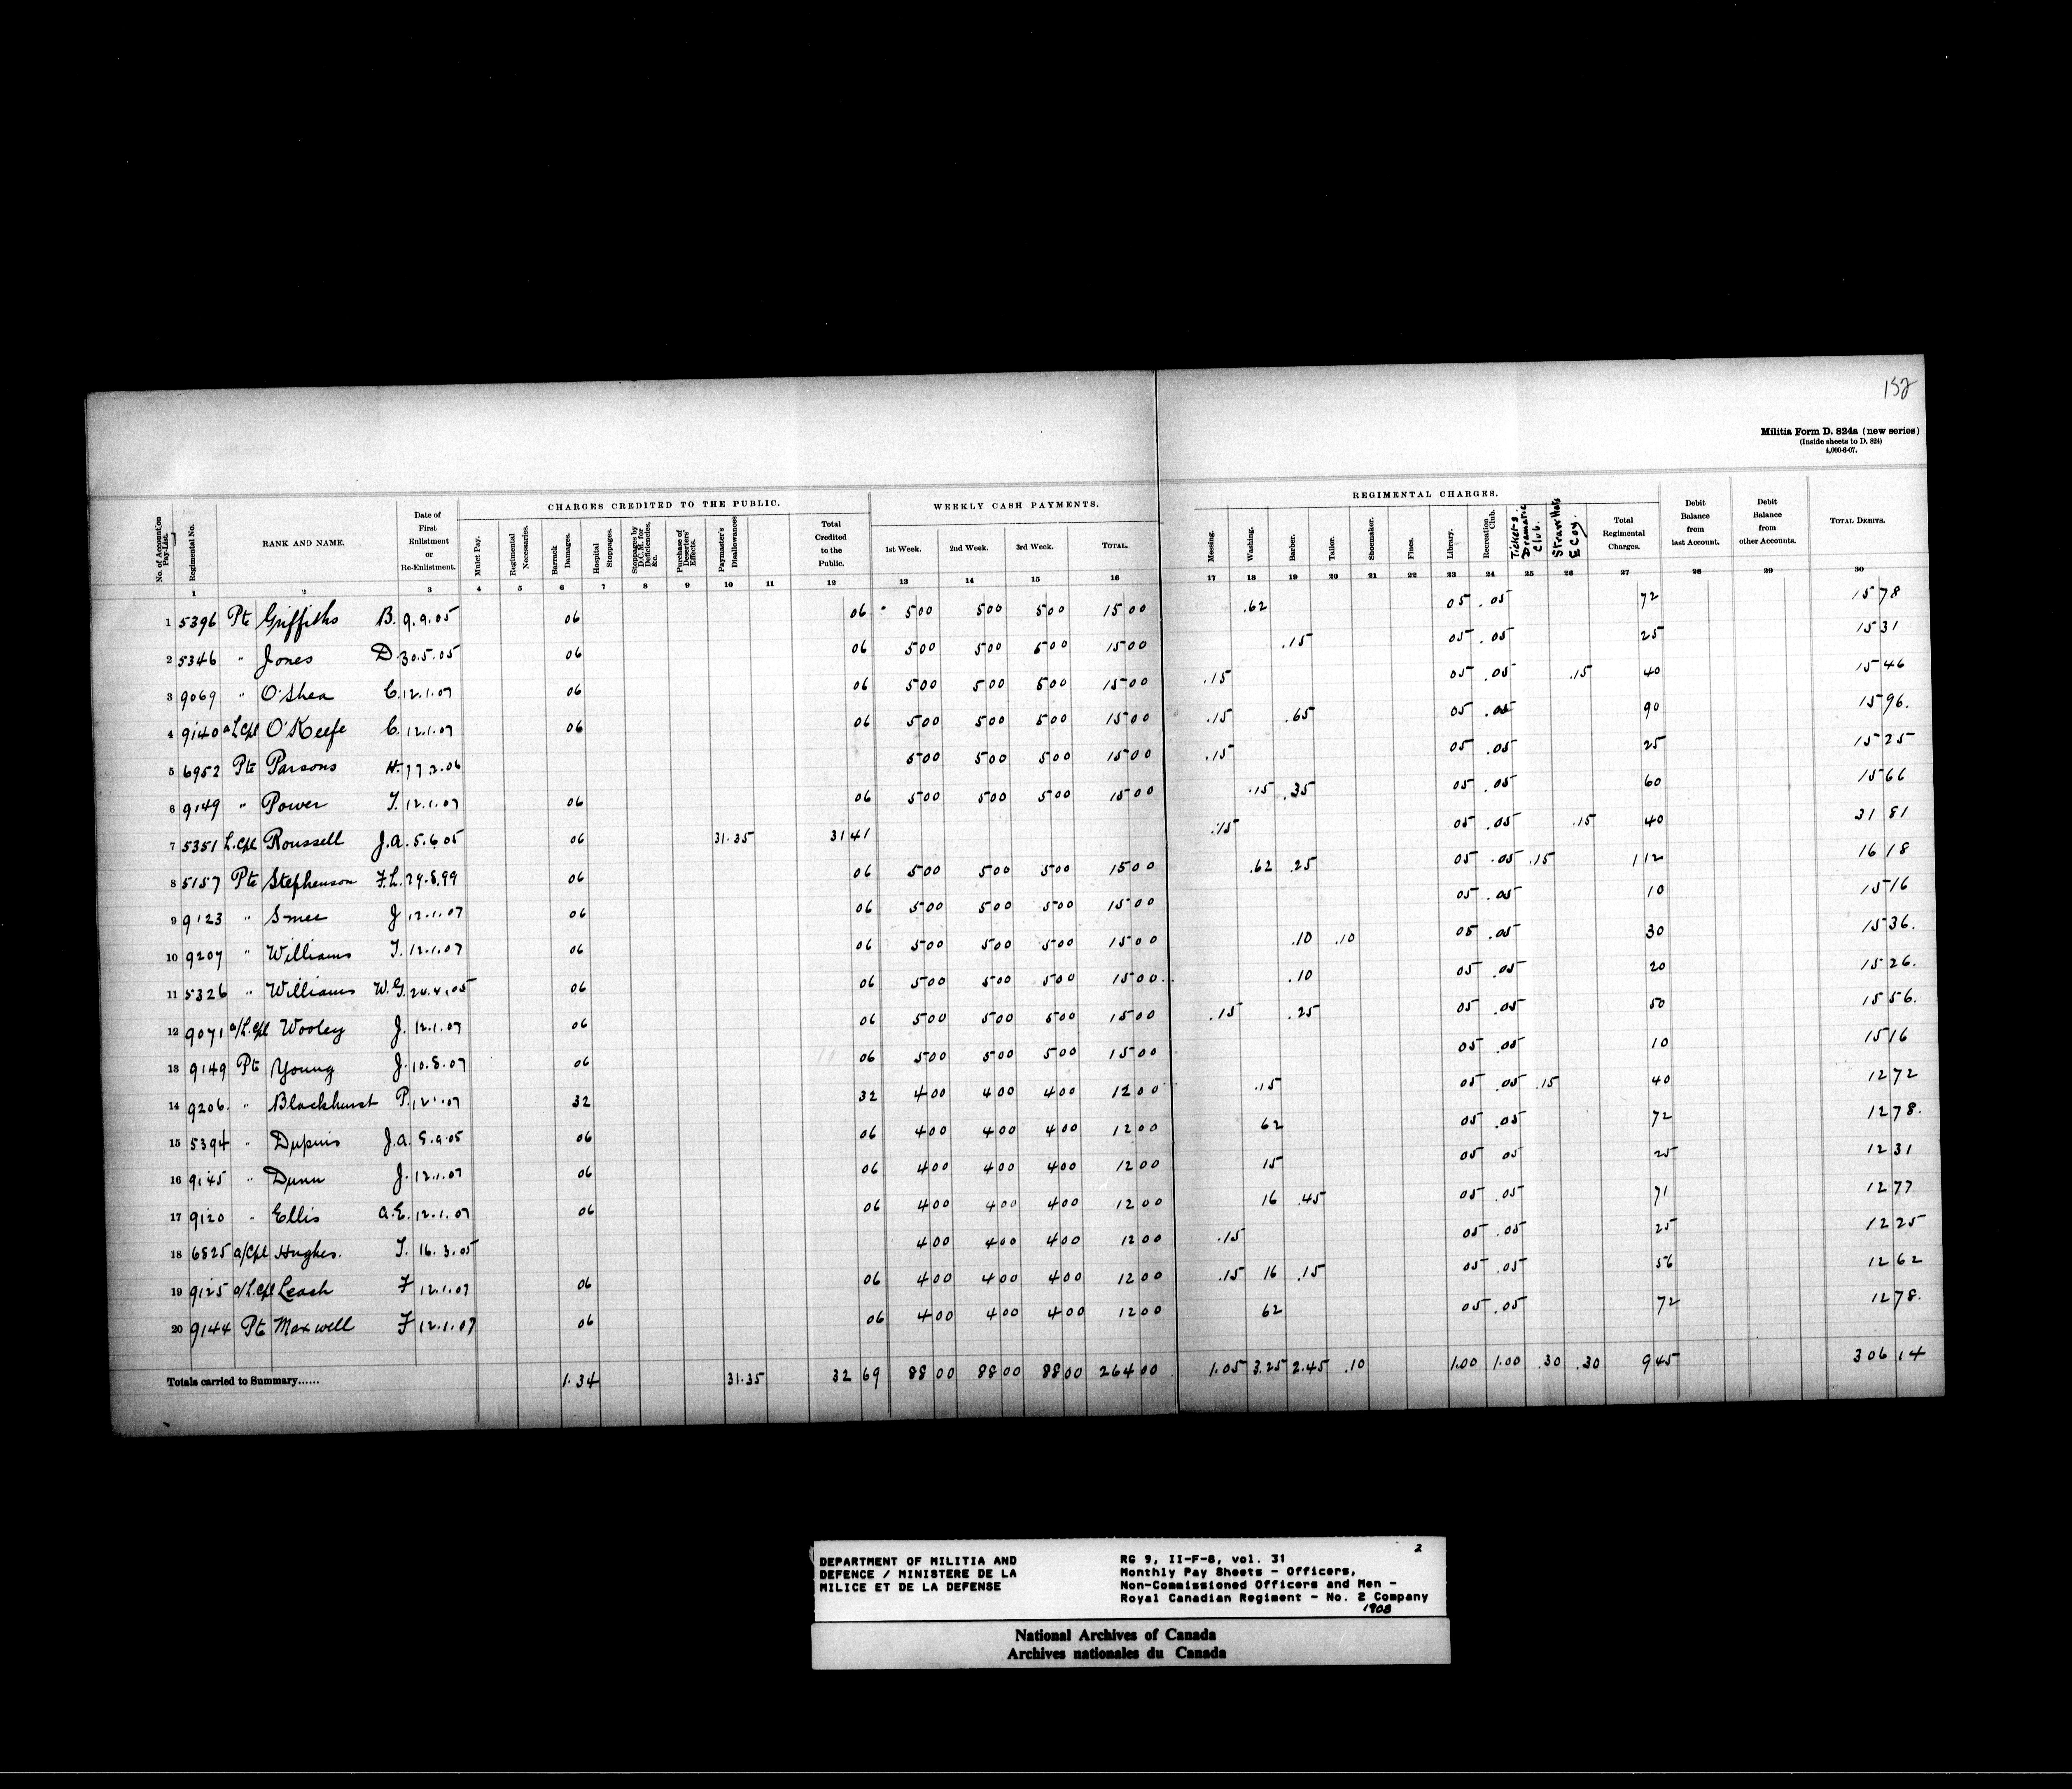 152
Militia Form D. 824a (new series)
(Inside sheets to D. 824)
4,000-6-07.
CHARGES CREDITED TO THE PUBLIC. WEEKLY CASH PAYMENTS. REGIMENTAL CHARGES.
No. of Account on Pay-List. Regimental No. RANK AND NAME. Date of First Enlistment or Re-Enlistment. Mulct Pay. Regimental Necessaries. Barrack Damages. Hospital Stoppages. Stoppages by D.C.M. for Deficiencies, &c. Purchase of Deserters' Effects. Paymaster's Disallowances Total Credited to the Public. 1st Week. 2nd Week. 3rd Week. TOTAL. Messing. Washing. Barber. Tailor. Shoemaker. Fines. Library. Recreation Club. Tickets Dramatic Club. Straw Hats E Coy. Total Regimental Charges. Debit Balance from last Account. Debit Balance from other Accounts. TOTAL DEBITS.
1 2 3 4 5 6 7 8 9 10 11 12 13 14 15 16 17 18 19 20 21 22 23 24 25 26 27 28 29 30
1 5396 Pte Griffiths B. 9.9.05 06 06 5 00 5 00 5 00 15 00 .62 05 .05 72 15 78
2 5346 " Jones D. 30.5.05 06 06 5 00 5 00 5 00 15 00 .15 05 .05 25 15 31
3 9069 " O'Shea C. 12.1.07 06 06 5 00 5 00 5 00 15 00 .15 05 .05 .15 40 15 46
4 9140 a/L.Cpl O'Keefe C. 12.1.07 06 06 5 00 5 00 5 00 15 00 .15 .65 05 .05 90 15 96.
5 6952 Pte Parsons H. 17.2.06 5 00 5 00 5 00 15 00 .15 05 .05 25 15 25
6 9149 " Power T. 12.1.07 06 06 5 00 5 00 5 00 15 00 .15 .35 05 .05 60 15 66
7 5351 L.Cpl Roussell J.A. 5.6.05 06 31.35 31 41 .15 05 .05 .15 40 31 81
8 5157 Pte Stephenson F.L. 29.8.99 06 06 5 00 5 00 5 00 15 00 .62 .25 05 .05 .15 1 12 16 18
9 9123 " Smee J 12.1.07 06 06 5 00 5 00 5 00 15 00 05 .05 10 15 16
10 9207 " Williams T. 12.1.07 06 06 5 00 5 00 5 00 15 00 .10 .10 05 .05 30 15 36.
11 5326 " Williams W.G. 24.4.05 06 06 5 00 5 00 5 00 15 00 .10 05 .05 20 15 26.
12 9071 a/L.Cpl Wooley J. 12.1.07 06 06 5 00 5 00 5 00 15 00 .15 .25 05 .05 50 15 56.
13 9149 Pte Young J. 10.8.07 06 06 5 00 5 00 5 00 15 00 05 .05 10 15 16
14 9206. " Blackhurst P. 12.1.07 32 32 4 00 4 00 4 00 12 00 .15 05 .05 .15 40 12 72
15 5394 " Dupuis J.A. 5.9.05 06 06 4 00 4 00 4 00 12 00 62 05 .05 72 12 78.
16 9145 " Dunn J. 12.1.07 06 06 4 00 4 00 4 00 12 00 15 05 05 25 12 31
17 9120 " Ellis A.E. 12.1.07 06 06 4 00 4 00 4 00 12 00 16 .45 05 .05 71 12 77
18 6825 a/Cpl Hughes. T. 16.3.05 4 00 4 00 4 00 12 00 .15 05 .05 25 12 25
19 9125 a/L.Cpl Leach F 12.1.07 06 06 4 00 4 00 4 00 12 00 .15 16 .15 05 .05 56 12 62
20 9144 Pte Maxwell F 12.1.07 06 06 4 00 4 00 4 00 12 00 62 05 .05 72 12 78.
Totals carried to Summary...... 1.34 31.35 32 69 88 00 88 00 88 00 264 00 1.05 3.25 2.45 .10 1.00 1.00 .30 .30 9 45 306 14
2
DEPARTMENT OF MILITIA AND
DEFENCE / MINISTERE DE LA
MILICE ET DE LA DEFENSE
RG 9, II-F-8, vol. 31
Monthly Pay Sheets - Officers,
Non-Commissioned Officers and Men -
Royal Canadian Regiment - No. 2 Company
1908
National Archives of Canada
Archives nationales du Canada